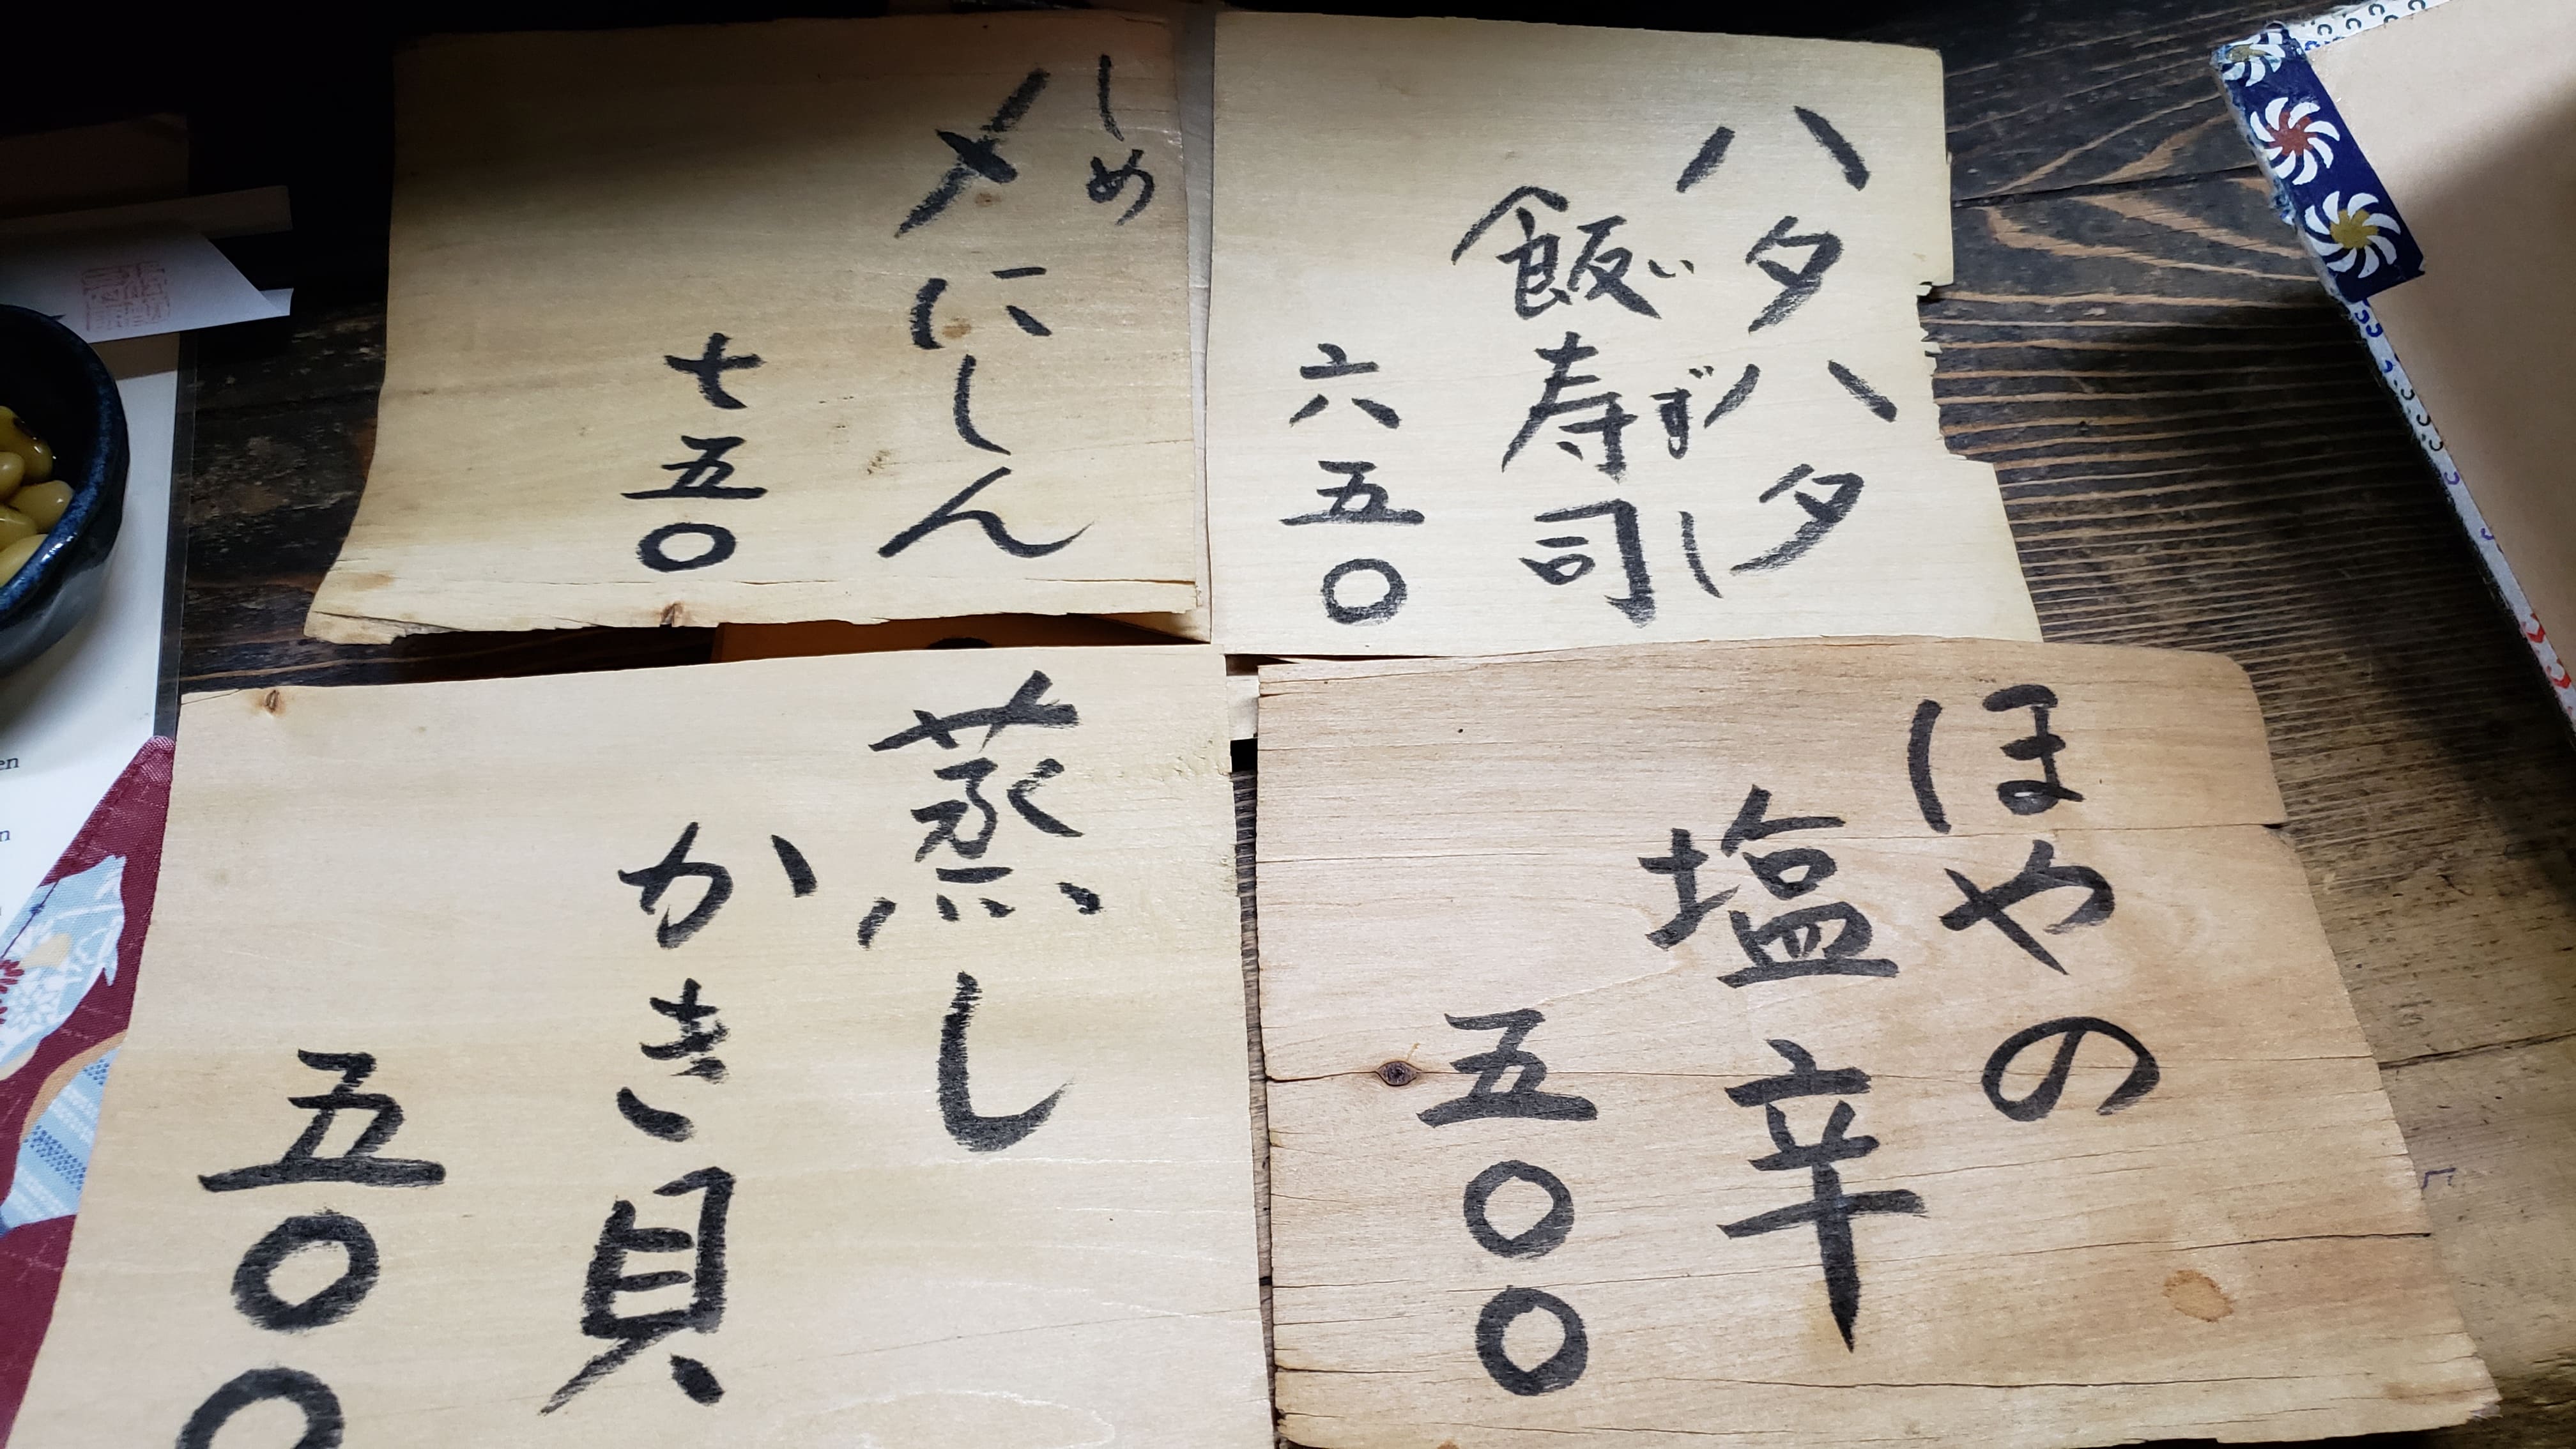 ハタハタ
飯寿司
いずし
六五〇
しめ
〆にしん
七五〇
ほやの
塩辛
五〇〇
蒸し
かき貝
五〇〇
en
n